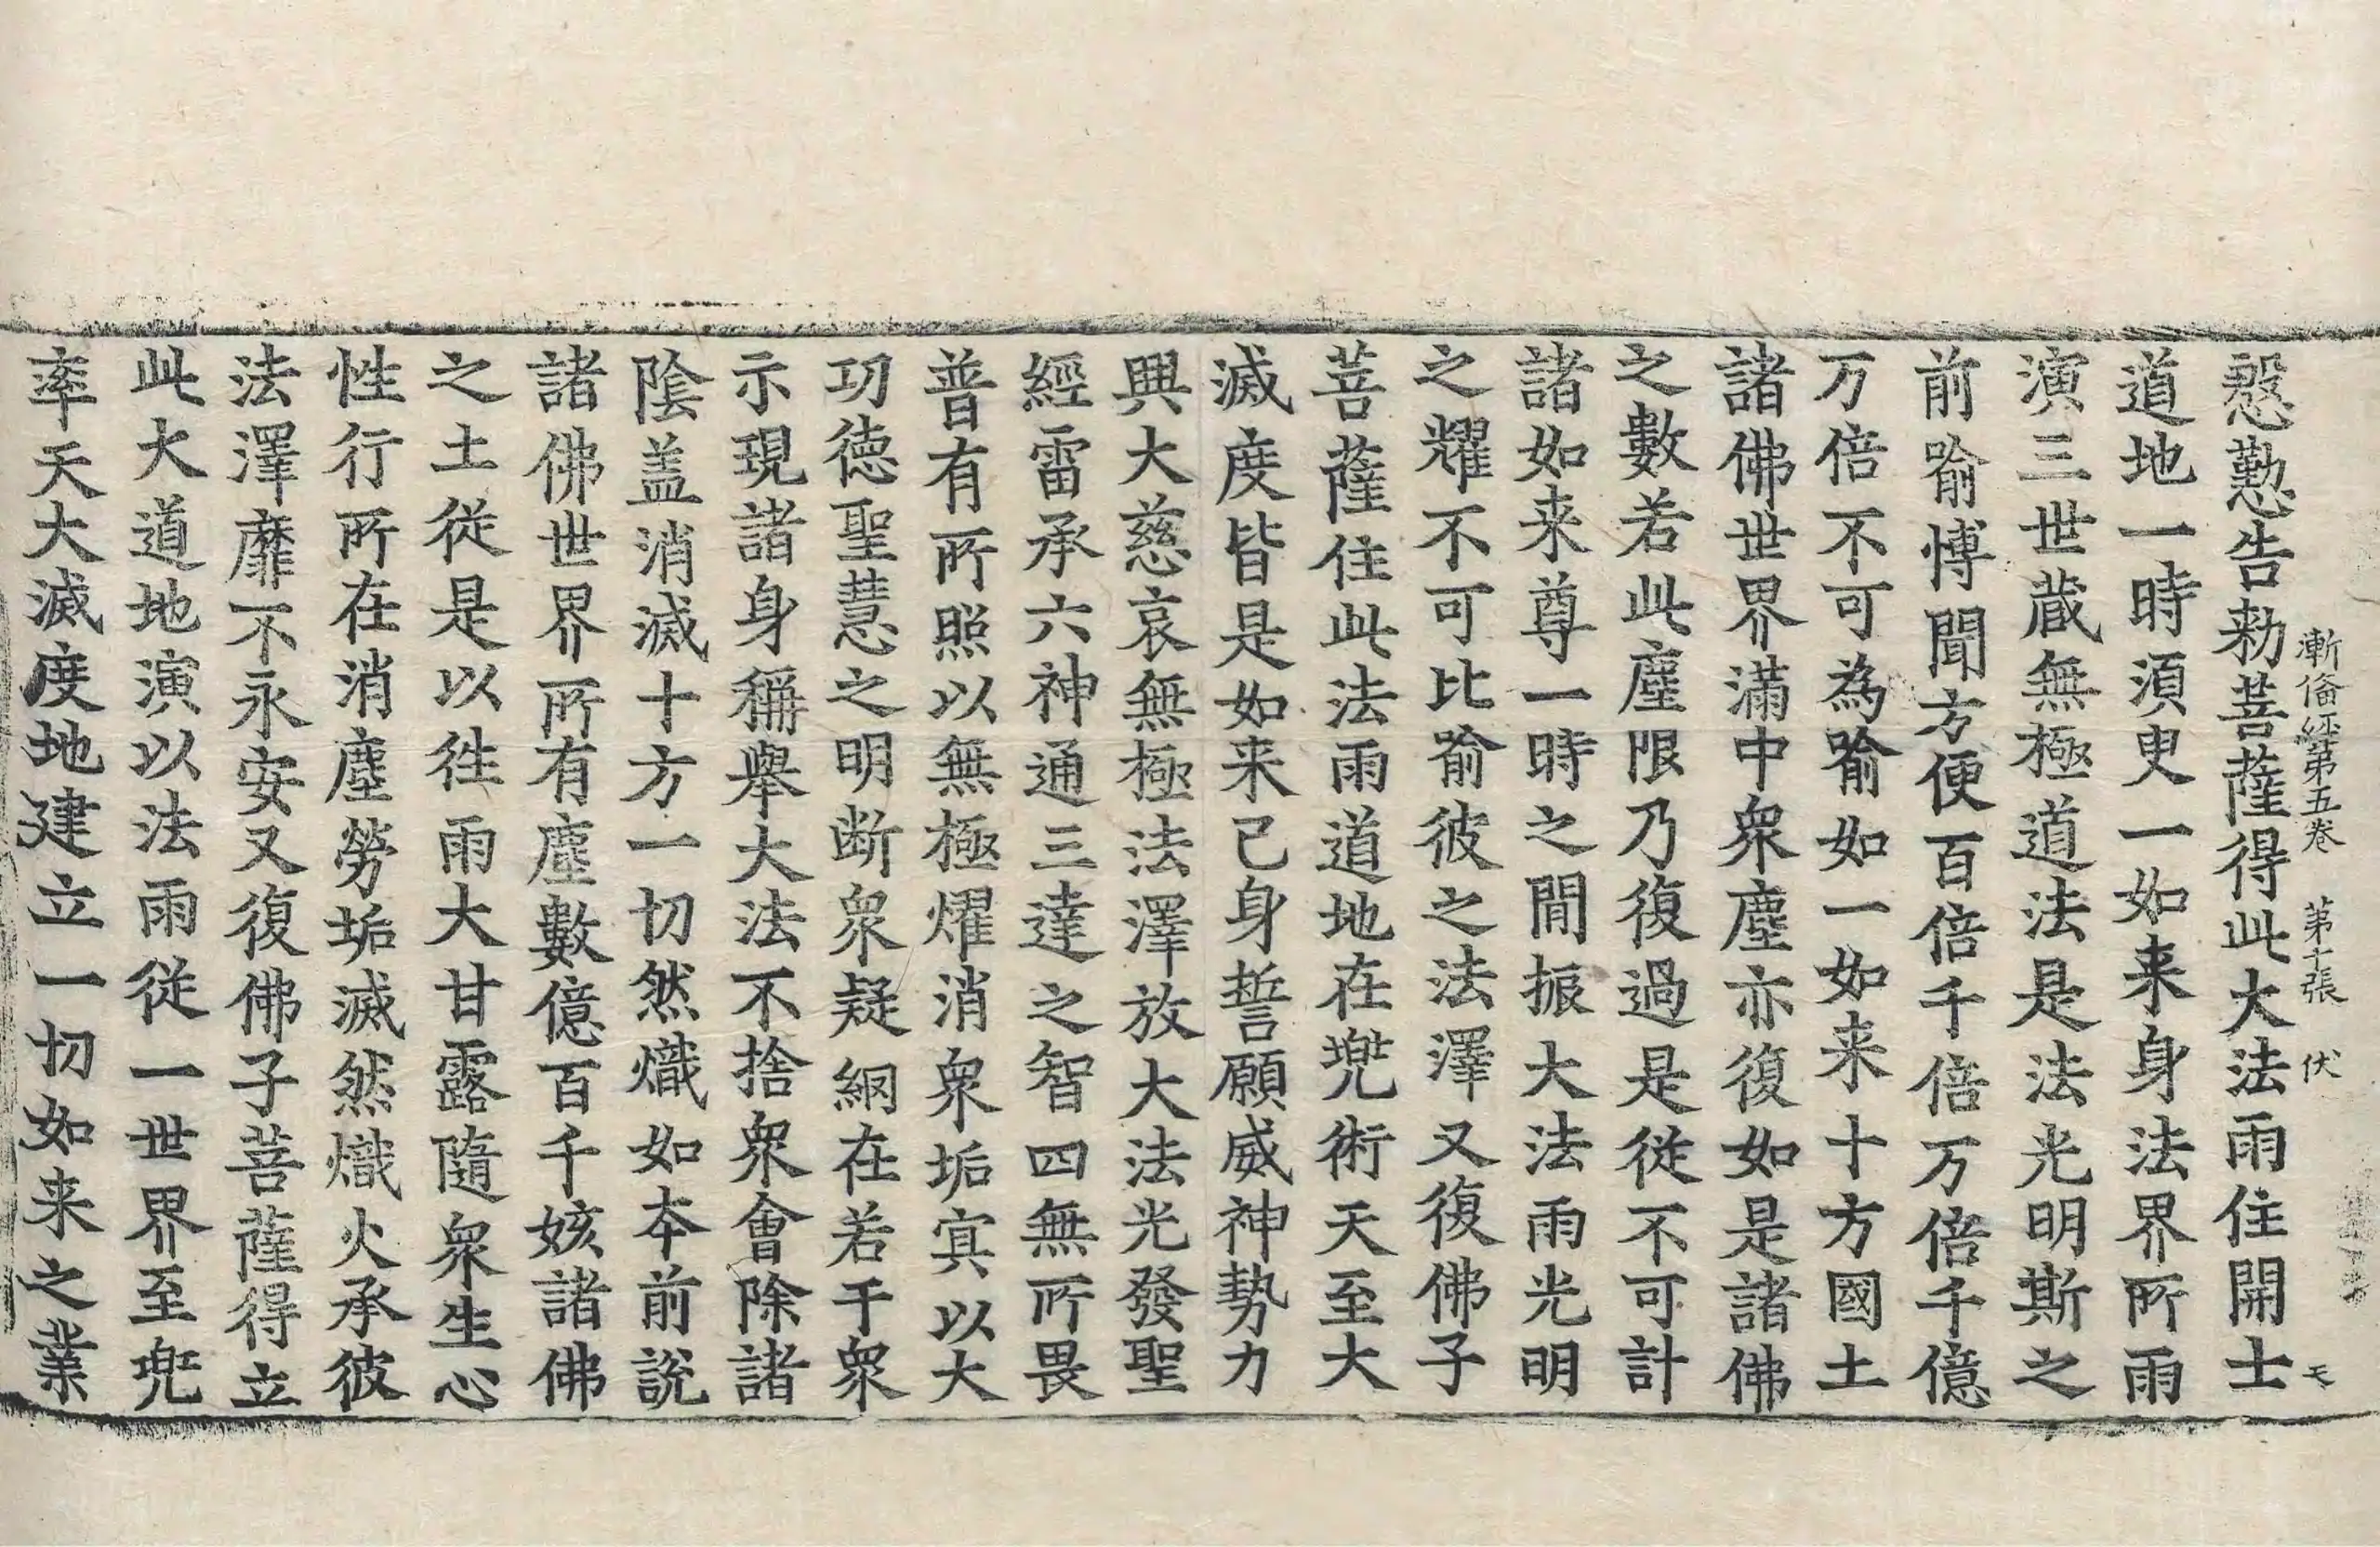 漸俻經第五卷　第十張　伏
慇懃告勑菩薩得此大法雨住開士
道地一時須臾一如来身法界所雨
演三世蔵無極道法是法光明斯之
前喻愽聞方便百倍千倍万倍千億
万倍不可為喻如一如来十方國土
諸佛世界滿中衆塵亦復如是諸佛
之數若此塵限乃復過是従不可計
諸如来尊一時之閒振大法雨光明
之耀不可比喻彼之法澤又復佛子
菩薩住此法雨道地在兠術天至大
滅度皆是如来己身誓願威神勢力
興大慈哀無極法澤放大法光發聖
經雷承六神通三達之智四無所畏
普有所照以無極燿消衆垢㝠以大
功徳聖慧之明断衆疑網在若干衆
示現諸身稱舉大法不捨衆會除諸
陰盖消滅十方一切然熾如本前說
諸佛世界所有塵數億百千姟諸佛
之土従是以徃雨大甘露隨衆生心
性行所在消塵勞垢滅然熾火承彼
法澤靡不永安又復佛子菩薩得立
此大道地演以法雨従一世界至兠
率天大滅度地建立一切如来之業